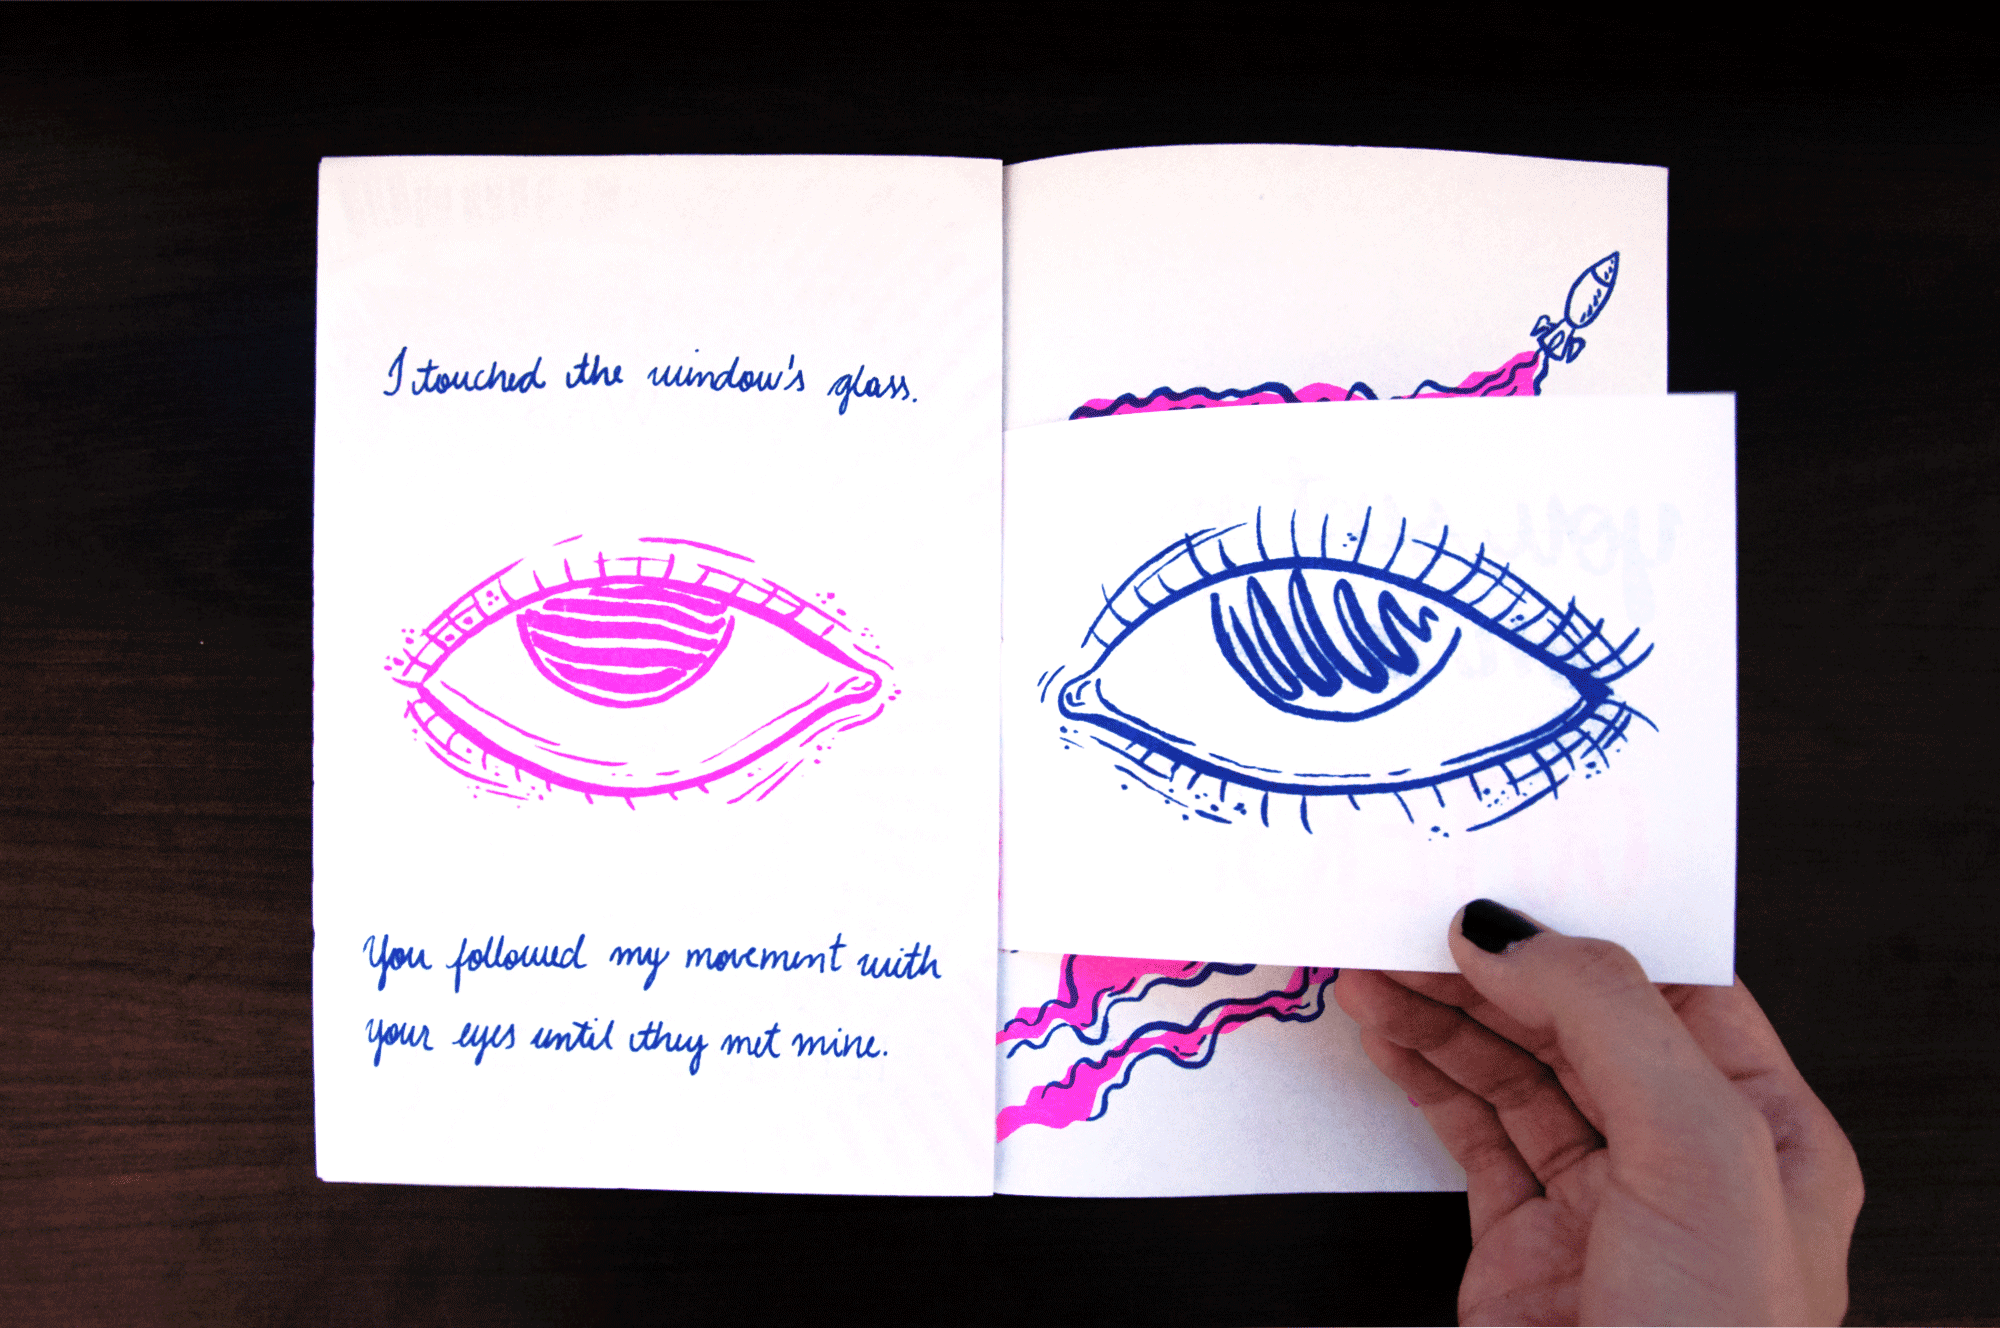 I touched the window's glass.
You followed my movement with
your eyes until they met mine.
you